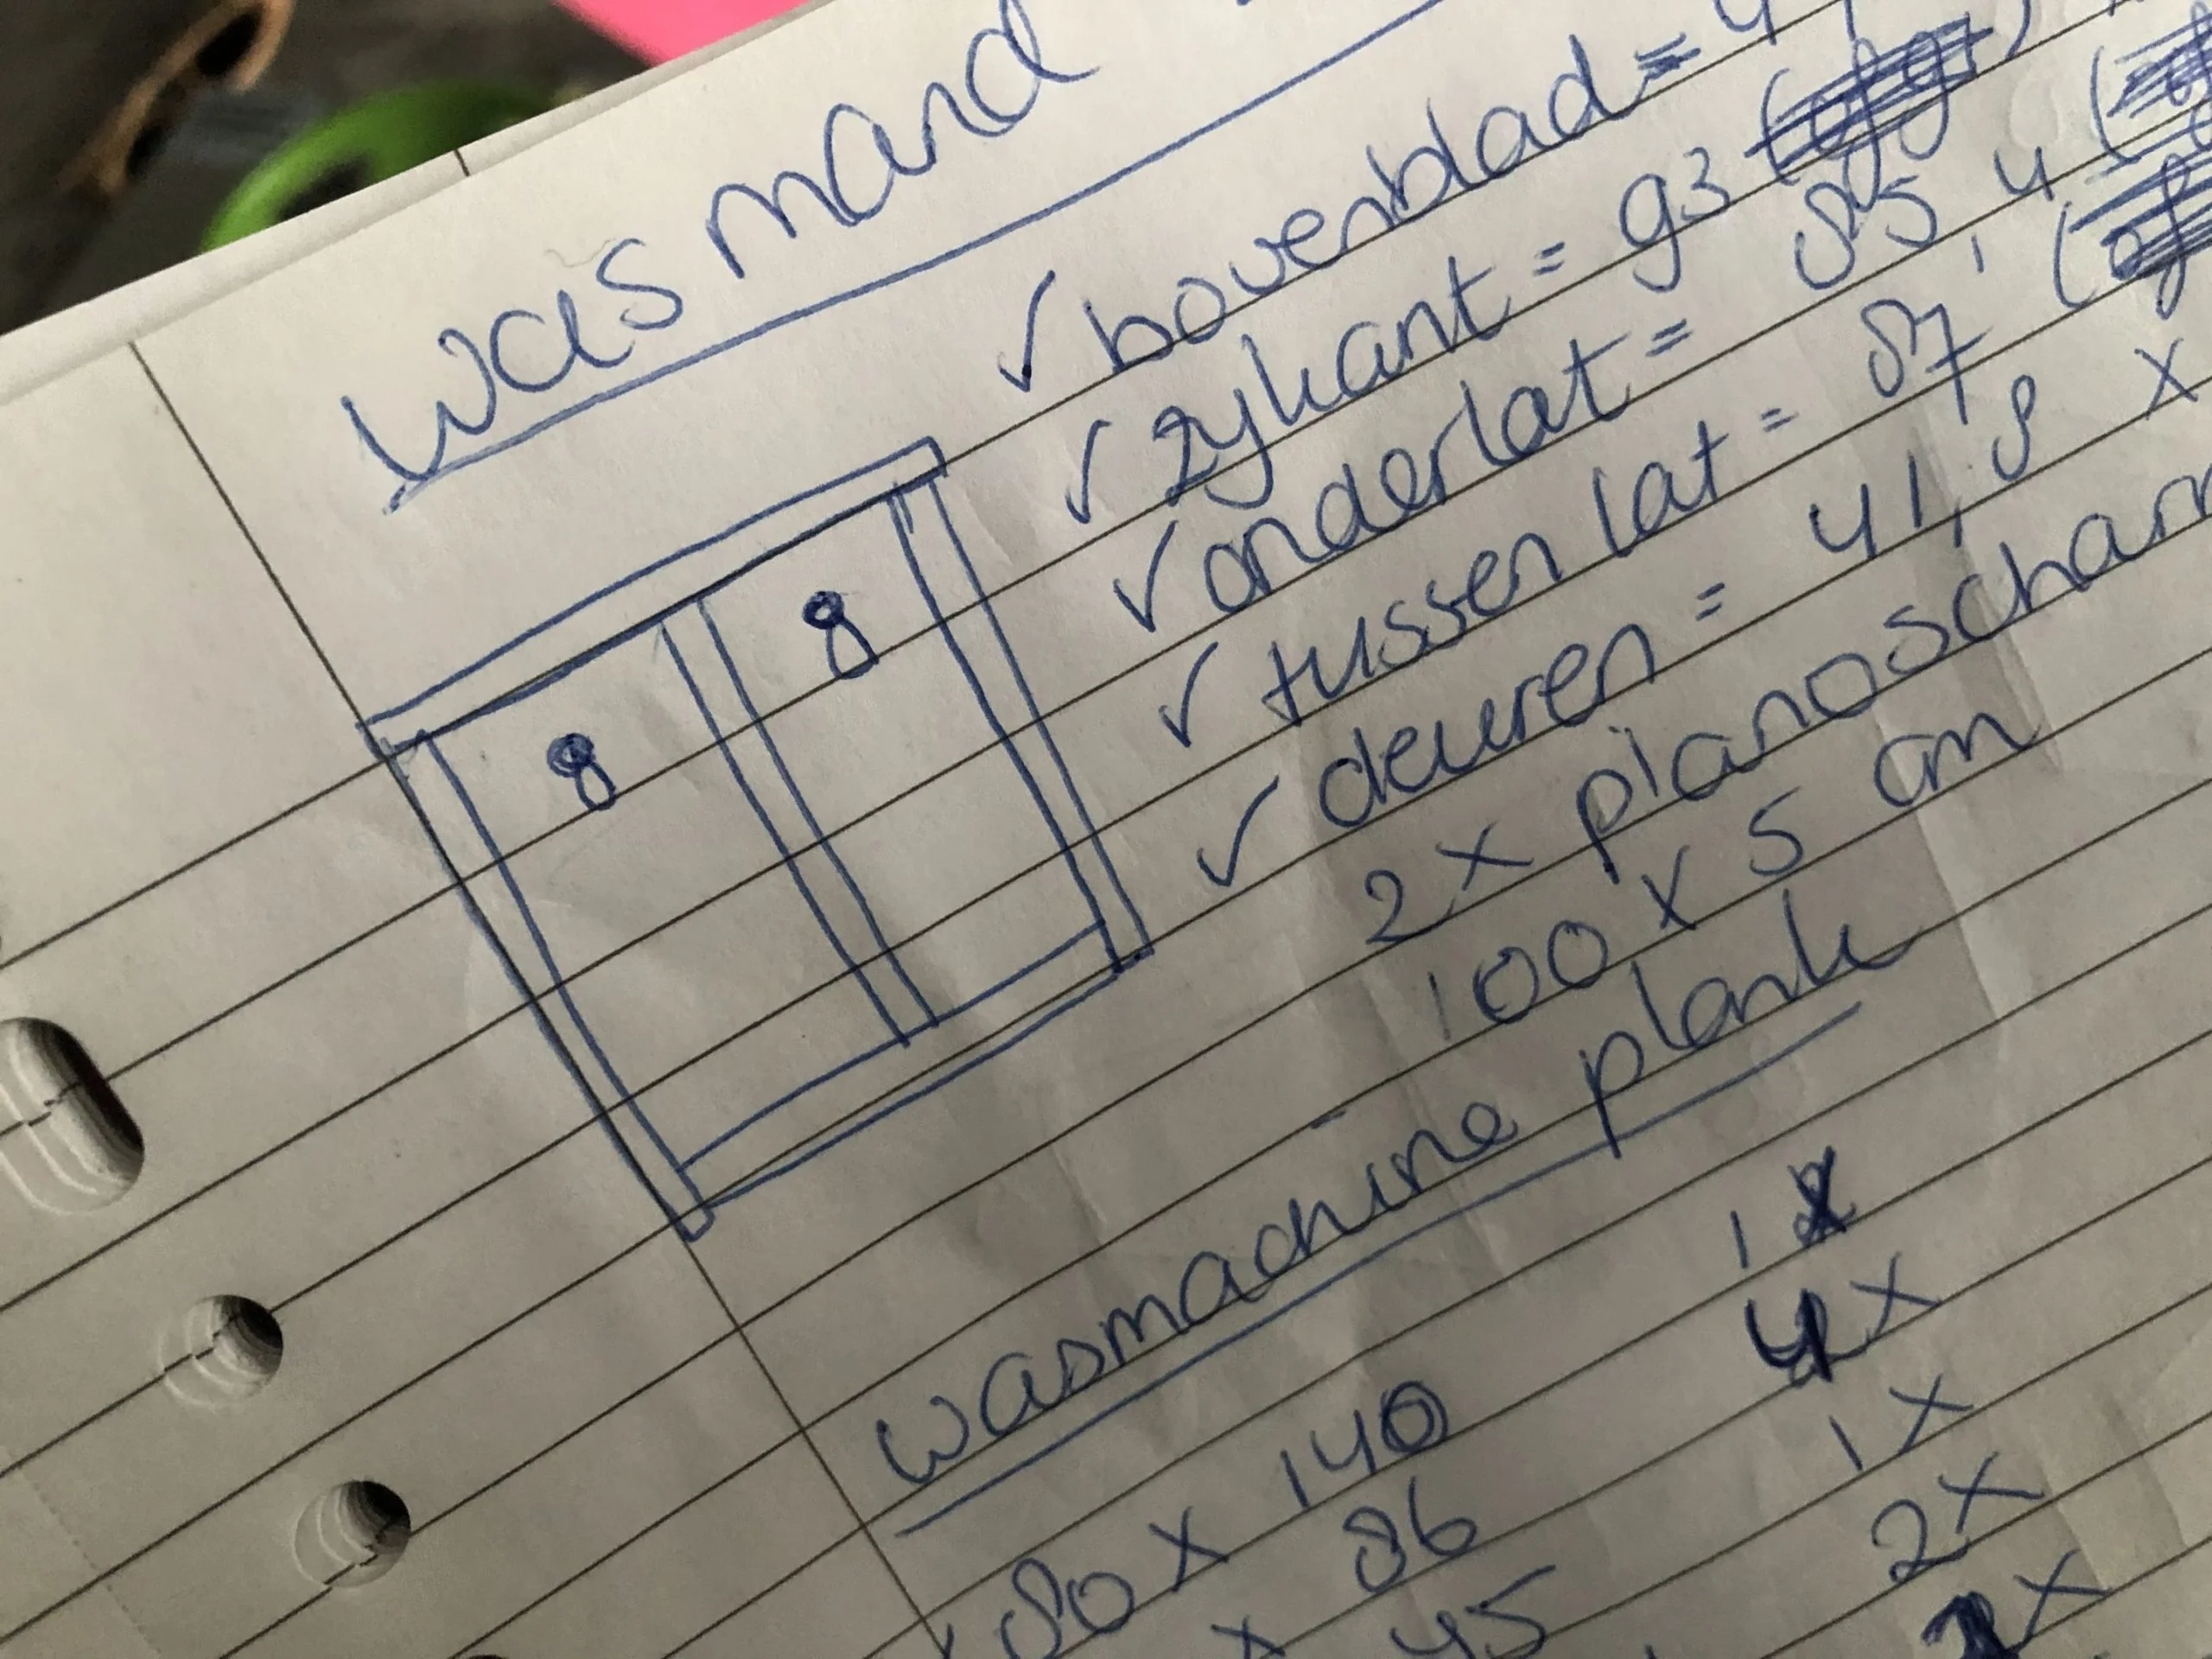 wasmand
✓ bovenblad =
✓ zijkant = 93
✓ onderlat = 85,4
✓ tussenlat = 87
✓ deuren = 41,8 x
2 x pianoscharn
100 x 5 cm
8
8
wasmachine plank
80 x 140 1x
x 86 4x
45 1x
2x
x